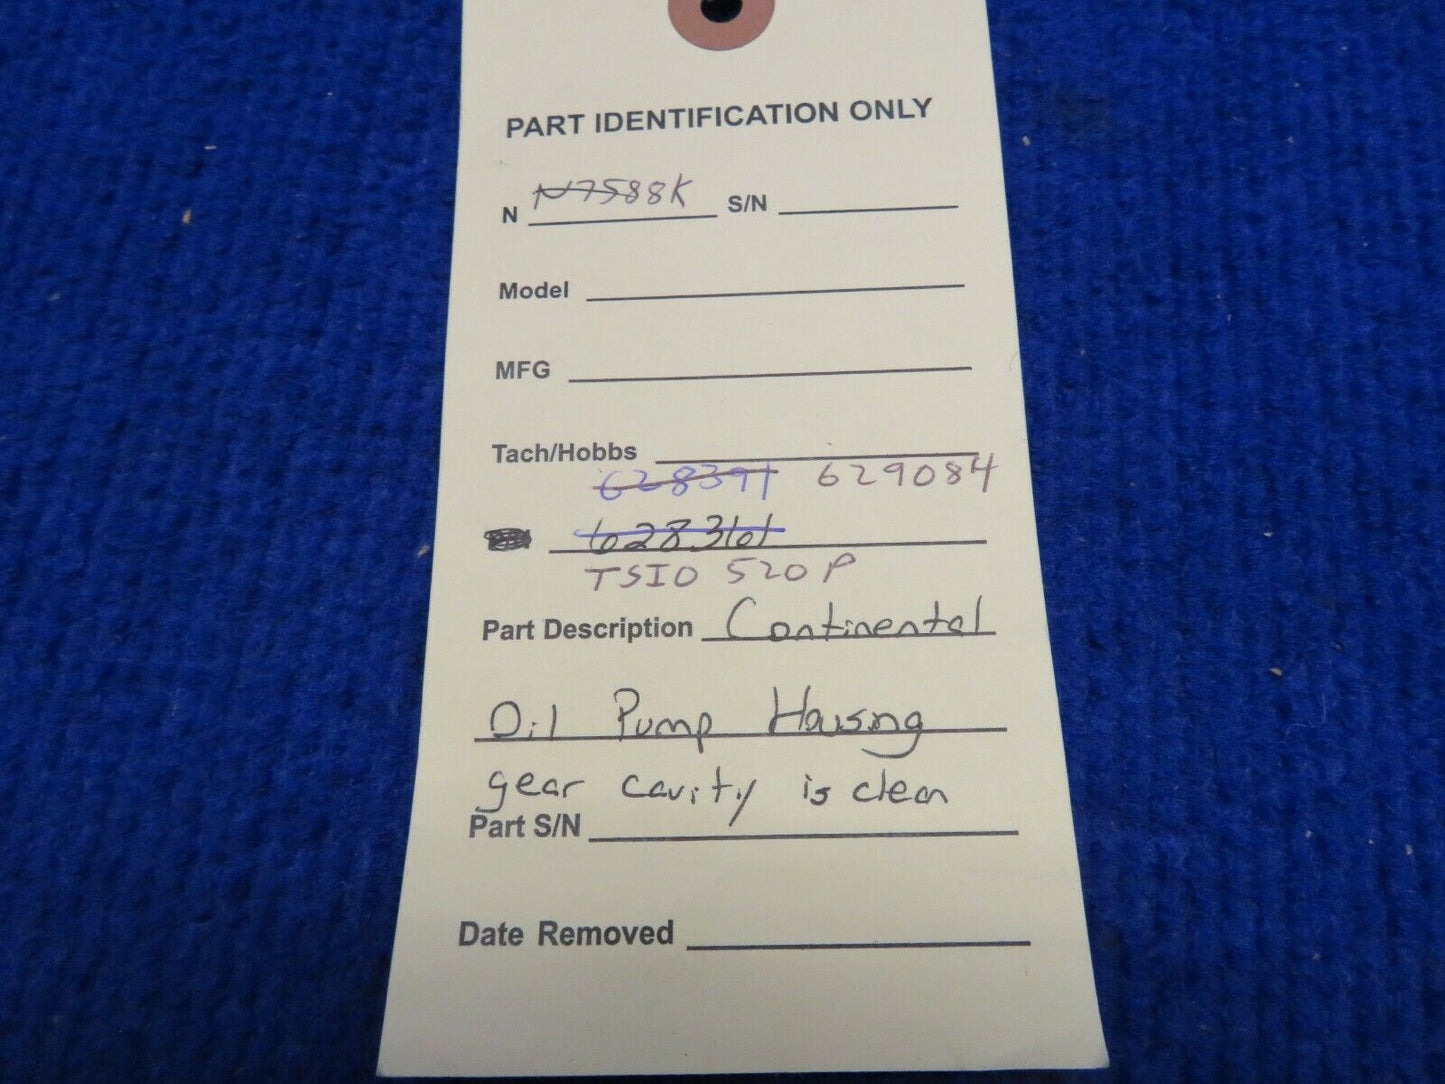 PART IDENTIFICATION ONLY
N N7588K S/N
Model
MFG
Tach/Hobbs
628391 629084
628361
TSIO 520P
Part Description Continental
Oil Pump Housing
gear cavity is clean
Part S/N
Date Removed